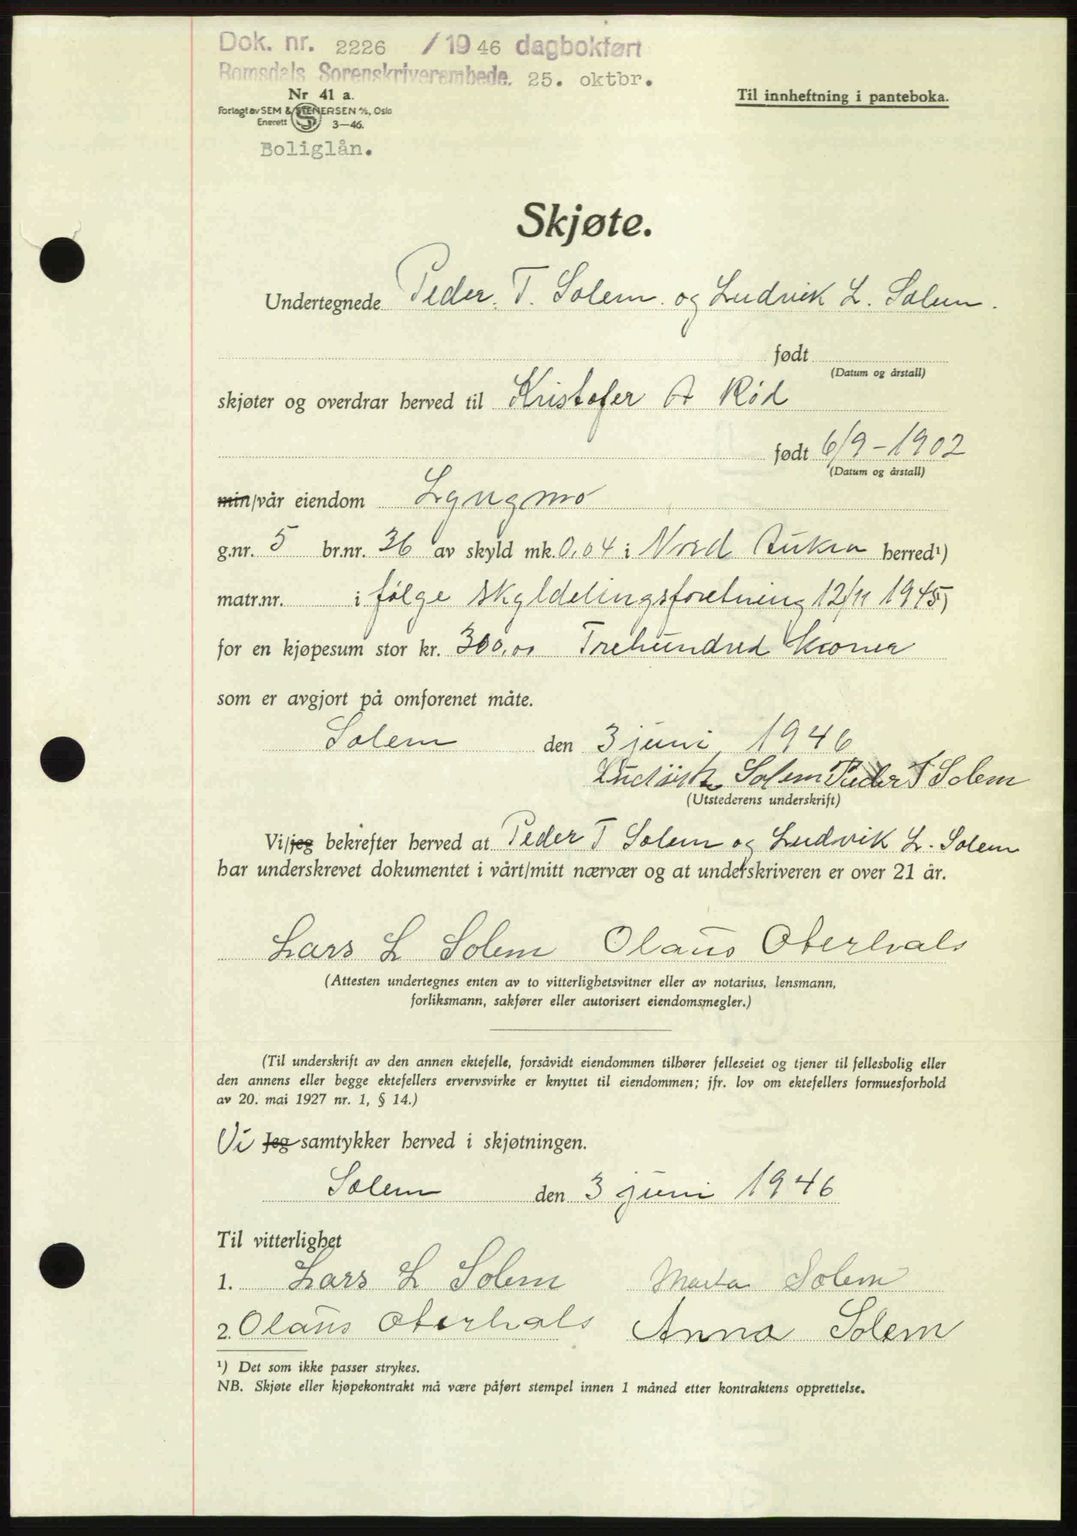 Dok. nr. 2226 / 1946 dagbokført
Romsdals Sorenskriverembede. 25. oktbr.
Nr 41 a.
Forlagt av SEM & STENERSEN A/S, Oslo
Enerett 3-46.
Til innheftning i panteboka.
Boliglån.
Skjøte.
Undertegnede Peder. T. Solem. og Ludvik L. Solem.
født
(Datum og årstall)
skjøter og overdrar herved til Kristofer A Rød
født 6/9-1902
(Datum og årstall)
min/vår eiendom Lyngmo
g.nr. 5 br.nr. 36 av skyld mk. 0,04 i Nord Aukra herred¹)
matr.nr. i følge skyldelingsforetning 12/11 1945)
for en kjøpesum stor kr. 300,00 Trehundred kroner
som er avgjort på omforenet måte.
Solem den 3 juni 1946
Ludvik L Solem Peder T Solem
(Utstederens underskrift)
Vi/jeg bekrefter herved at Peder T Solem og Ludvik L. Solem
har underskrevet dokumentet i vårt/mitt nærvær og at underskriveren er over 21 år.
Lars L Solem Olaus Oterhals
(Attesten undertegnes enten av to vitterlighetsvitner eller av notarius, lensmann,
forliksmann, sakfører eller autorisert eiendomsmegler.)
(Til underskrift av den annen ektefelle, forsåvidt eiendommen tilhører felleseiet og tjener til fellesbolig eller
den annens eller begge ektefellers ervervsvirke er knyttet til eiendommen; jfr. lov om ektefellers formuesforhold
av 20. mai 1927 nr. 1, § 14.)
Vi Jeg samtykker herved i skjøtningen.
Solem den 3 juni 1946
Til vitterlighet
1. Lars L Solem Marta Solem
2. Olaus Oterhals Anna Solem
¹) Det som ikke passer strykes.
NB. Skjøte eller kjøpekontrakt må være påført stempel innen 1 måned etter kontraktens opprettelse.